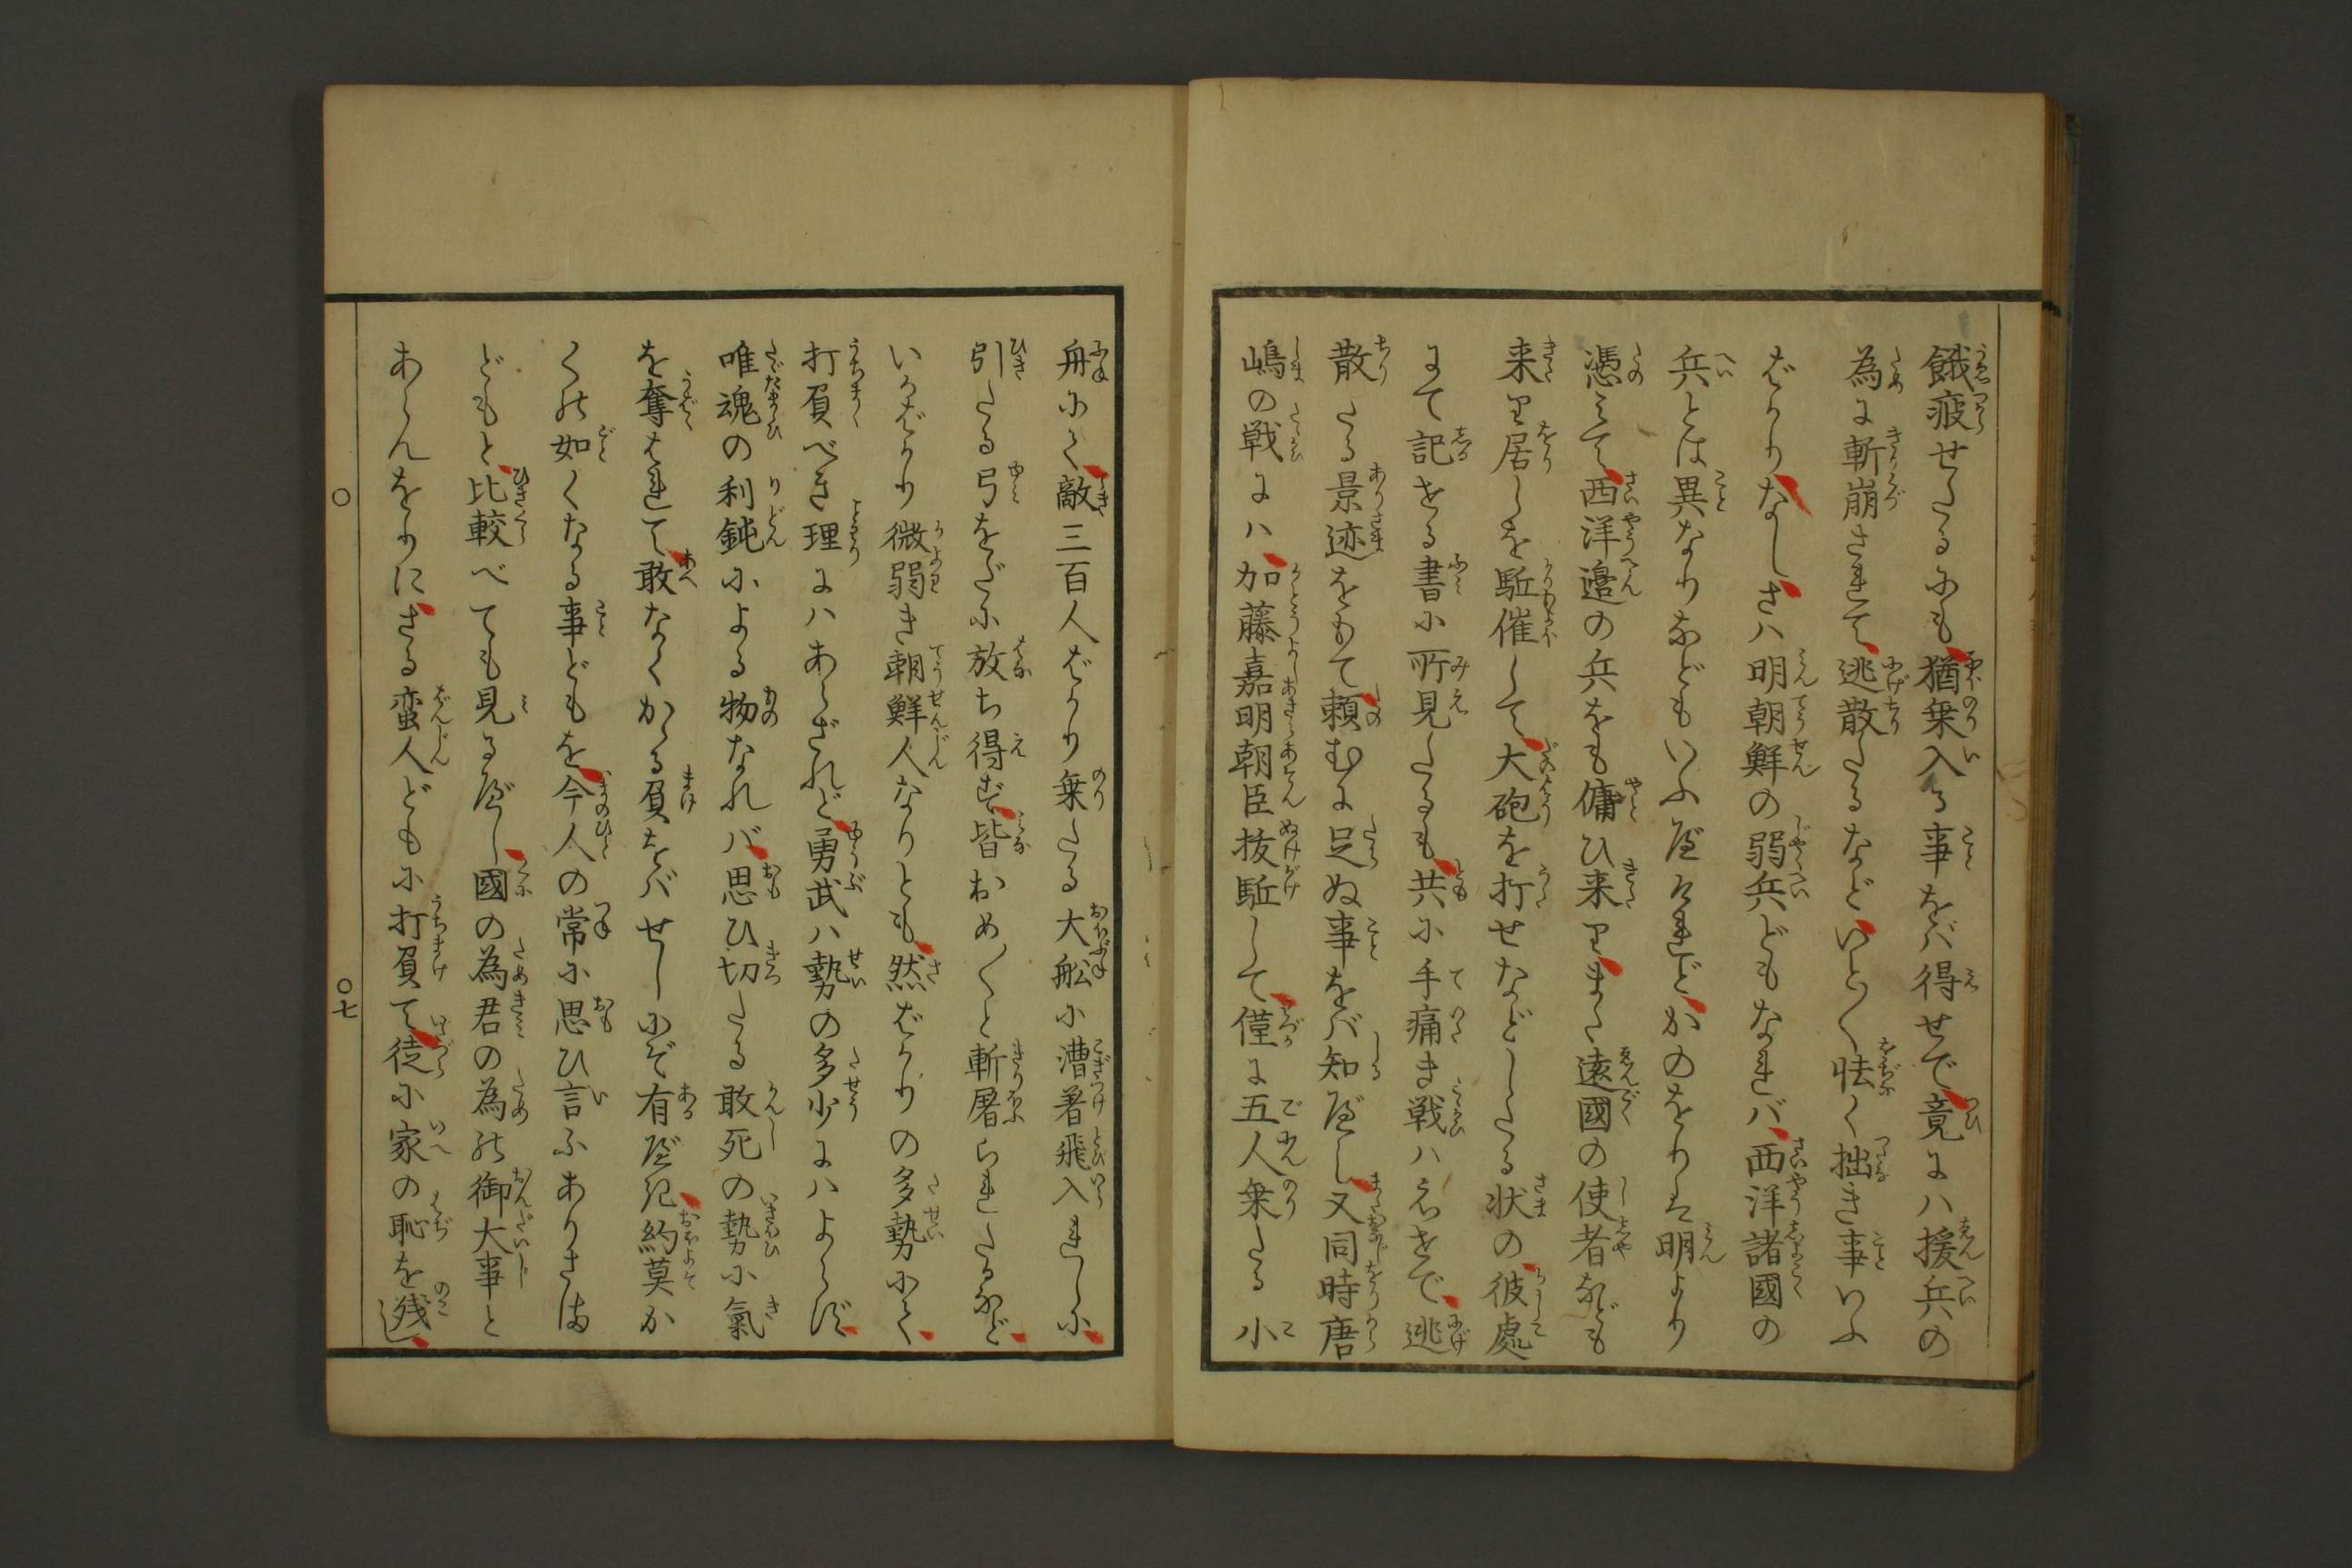 餓疲せたるにも猶乗入る事をバ得せで竟にハ援兵の
為に斬崩されて逃散たるなどいと〱怯く拙き事いふ
ばかりなしさハ明朝鮮の弱兵どもなれバ西洋諸國の
兵とは異なりなどもいふべけれどかのをりしも明より
憑みて西洋邉の兵をも傭ひ来りまた遠國の使者なども
来り居しを駈催して大砲を打せなどしたる状の彼處
にて記せる書に所見たるも共に手痛き戦ハえせで逃
散たる景迹をもて頼むに足ぬ事をバ知べし又同時唐
嶋の戦にハ加藤嘉明朝臣抜駈して僅に五人乗たる小
舟にて敵三百人ばかり乗たる大舩に漕著飛入れしに
引たる弓をだに放ち得ず皆おめ〱と斬屠られたるなど
いかばかり微弱き朝鮮人なりとも然ばかりの多勢にて
打負べき理にハあらざれど勇武ハ勢の多少にハよらず
唯魂の利鈍による物なれバ思ひ切たる敢死の勢に氣
を奪はれて敢なくかゝる負をバせしにぞ有べき約莫か
くの如くなる事どもを今人の常に思ひ言ふありさま
どもと比較べても見るべし國の為君の為の御大事と
あらんをりにさる蛮人どもに打負て徒に家の恥を残
〇
〇七